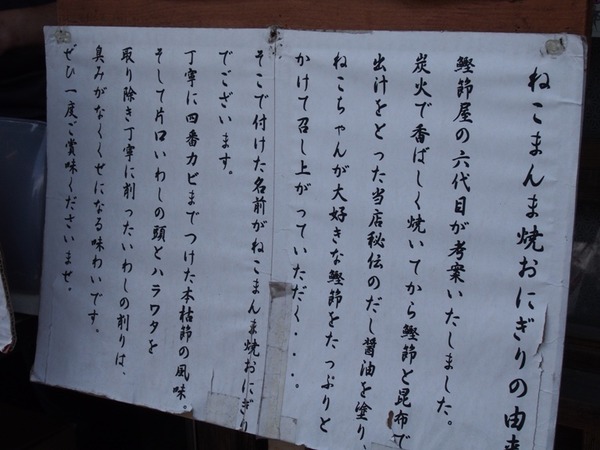 ねこまんま焼おにぎりの由来
鰹節屋の六代目が考案いたしました。
炭火で香ばしく焼いてから鰹節と昆布で
出汁をとった当店秘伝のだし醤油を塗り、
ねこちゃんが大好きな鰹節をたっぷりと
かけて召し上がっていただく・・・。
そこで付けた名前がねこまんま焼おにぎり
でございます。
丁寧に四番カビまでつけた本枯節の風味。
そして片口いわしの頭とハラワタを
取り除き丁寧に削ったいわしの削りは、
臭みがなくくせになる味わいです。
ぜひ一度ご賞味くださいませ。